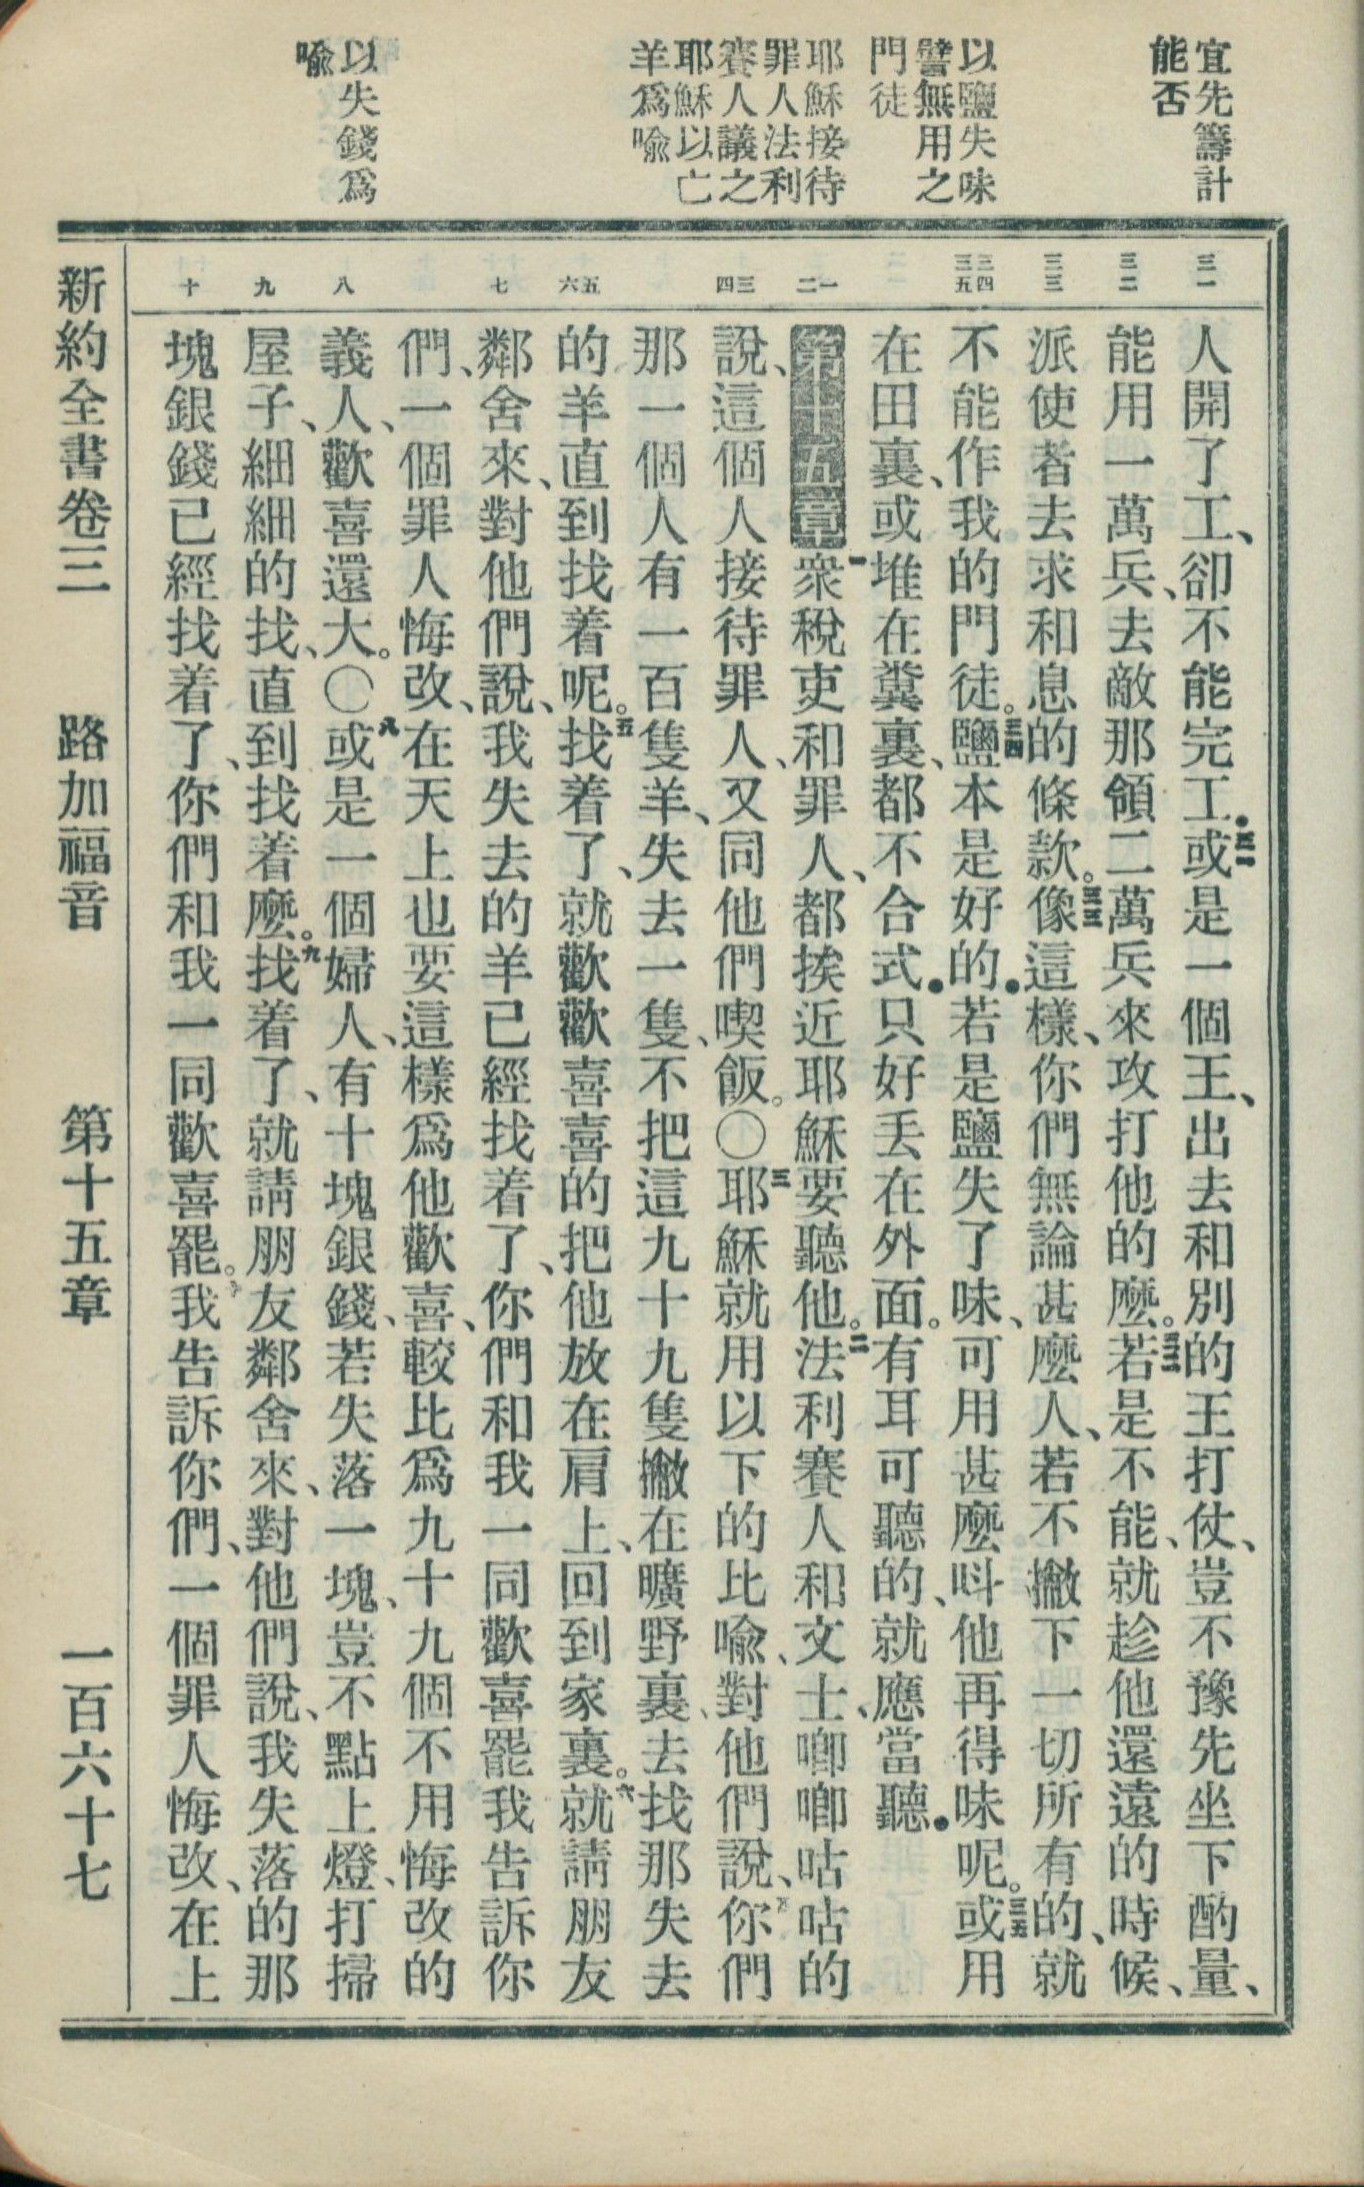 宜先籌計
能否
以鹽失味
譬無用之
門徒
耶穌接待
罪人法利
賽人議之
耶穌以亡
羊爲喩
以失錢爲
喩
三一
三二
三三
三四
三五
一
二
三
四
五
六
七
八
九
十
人開了工、卻不能完工。三一或是一個王、出去和別的王打仗、豈不豫先坐下酌量、
能用一萬兵、去敵那領二萬兵來攻打他的麼。三二若是不能、就趁他還遠的時候、
派使者去求和息的條款。三三像這樣、你們無論甚麼人、若不撇下一切所有的、就
不能作我的門徒。三四鹽本是好的.若是鹽失了味、可用甚麼呌他再得味呢。三五或用
在田裏、或堆在糞裏、都不合式.只好丟在外面。有耳可聽的、就應當聽.
第十五章 一衆稅吏和罪人、都挨近耶穌要聽他。二法利賽人和文士、喞喞咕咕的
說、這個人接待罪人、又同他們喫飯。〇三耶穌就用以下的比喩、對他們說、你們
那一個人有一百隻羊、失去一隻、不把這九十九隻撇在曠野裏、去找那失去
的羊直到找着呢。五找着了、就歡歡喜喜的把他放在肩上、回到家裏。六就請朋友
鄰舍來、對他們說、我失去的羊已經找着了、你們和我一同歡喜罷我告訴你
們、一個罪人悔改、在天上也要這樣爲他歡喜、較比爲九十九個不用悔改的
義人、歡喜還大。〇八或是一個婦人、有十塊銀錢、若失落一塊、豈不點上燈、打掃
屋子、細細的找、直到找着麼。九找着了、就請朋友鄰舍來、對他們說、我失落的那
塊銀錢已經找着了、你們和我一同歡喜罷。十我告訴你們、一個罪人悔改、在上
新約全書卷三 路加福音 第十五章 一百六十七